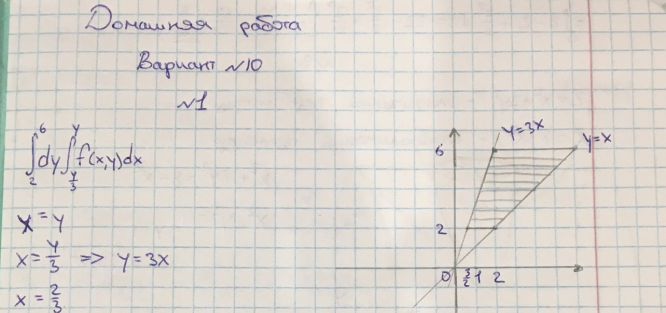 Домашняя работа
Вариант №10
№1
∫₂⁶ dy ∫_{y/3}^{y} f(x,y)dx
x = y
x = y/3 => y = 3x
x = 2/3
y=3x
y=x
6
2
0 3/2 1 2